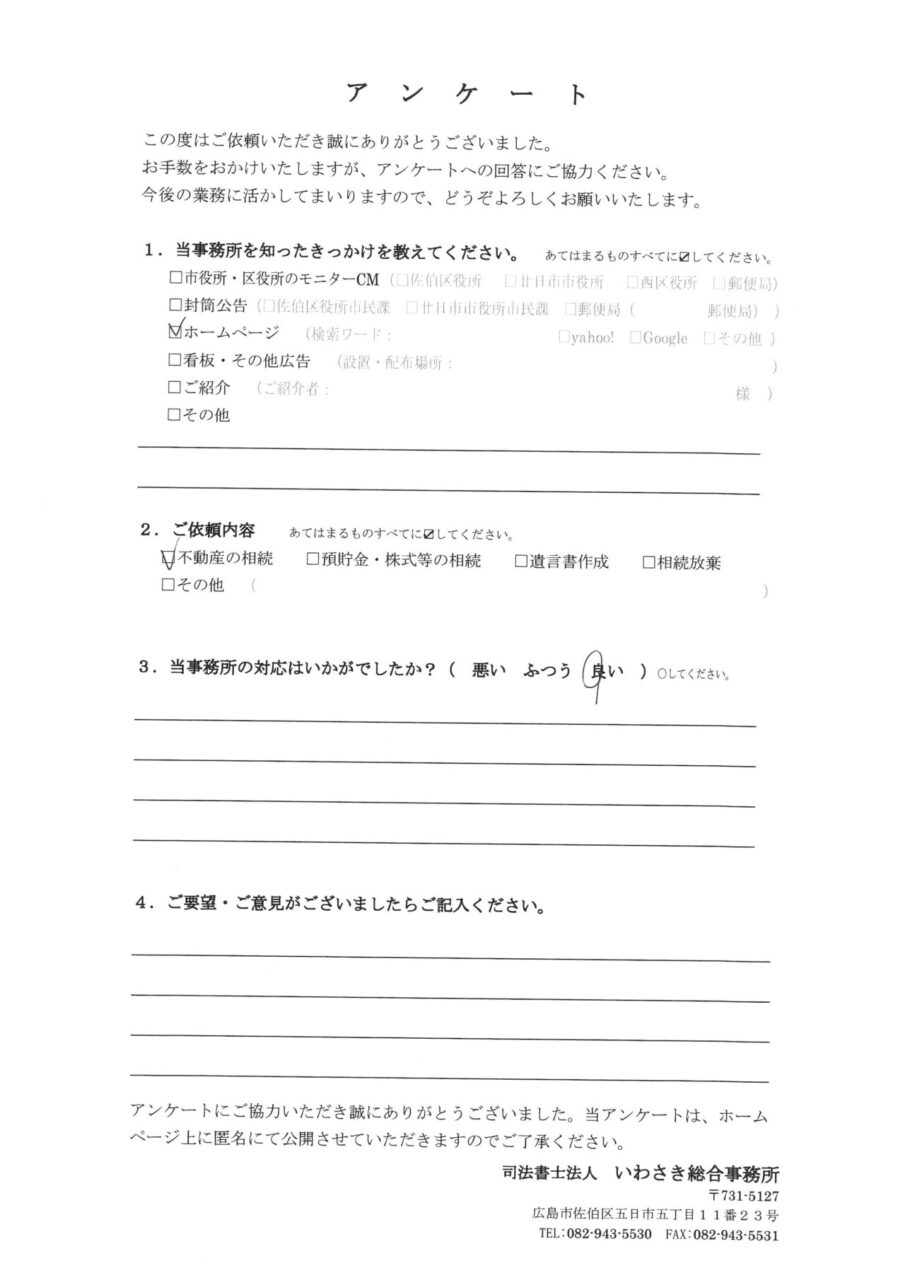 アンケート
この度はご依頼いただき誠にありがとうございました。
お手数をおかけいたしますが、アンケートへの回答にご協力ください。
今後の業務に活かしてまいりますので、どうぞよろしくお願いいたします。
1．当事務所を知ったきっかけを教えてください。 あてはまるものすべてに☑してください。
□市役所・区役所のモニターCM（□佐伯区役所 □廿日市市役所 □西区役所 □郵便局）
□封筒公告（□佐伯区役所市民課 □廿日市市役所市民課 □郵便局（ 郵便局））
☑ホームページ （検索ワード： □yahoo! □Google □その他）
□看板・その他広告 （設置・配布場所： ）
□ご紹介 （ご紹介者： 様 ）
□その他
2．ご依頼内容 あてはまるものすべてに☑してください。
☑不動産の相続 □預貯金・株式等の相続 □遺言書作成 □相続放棄
□その他 （ ）
3．当事務所の対応はいかがでしたか？（ 悪い ふつう 良い ）○してください。
4．ご要望・ご意見がございましたらご記入ください。
アンケートにご協力いただき誠にありがとうございました。当アンケートは、ホーム
ページ上に匿名にて公開させていただきますのでご了承ください。
司法書士法人 いわさき総合事務所
〒731-5127
広島市佐伯区五日市五丁目１１番２３号
TEL：082-943-5530 FAX：082-943-5531